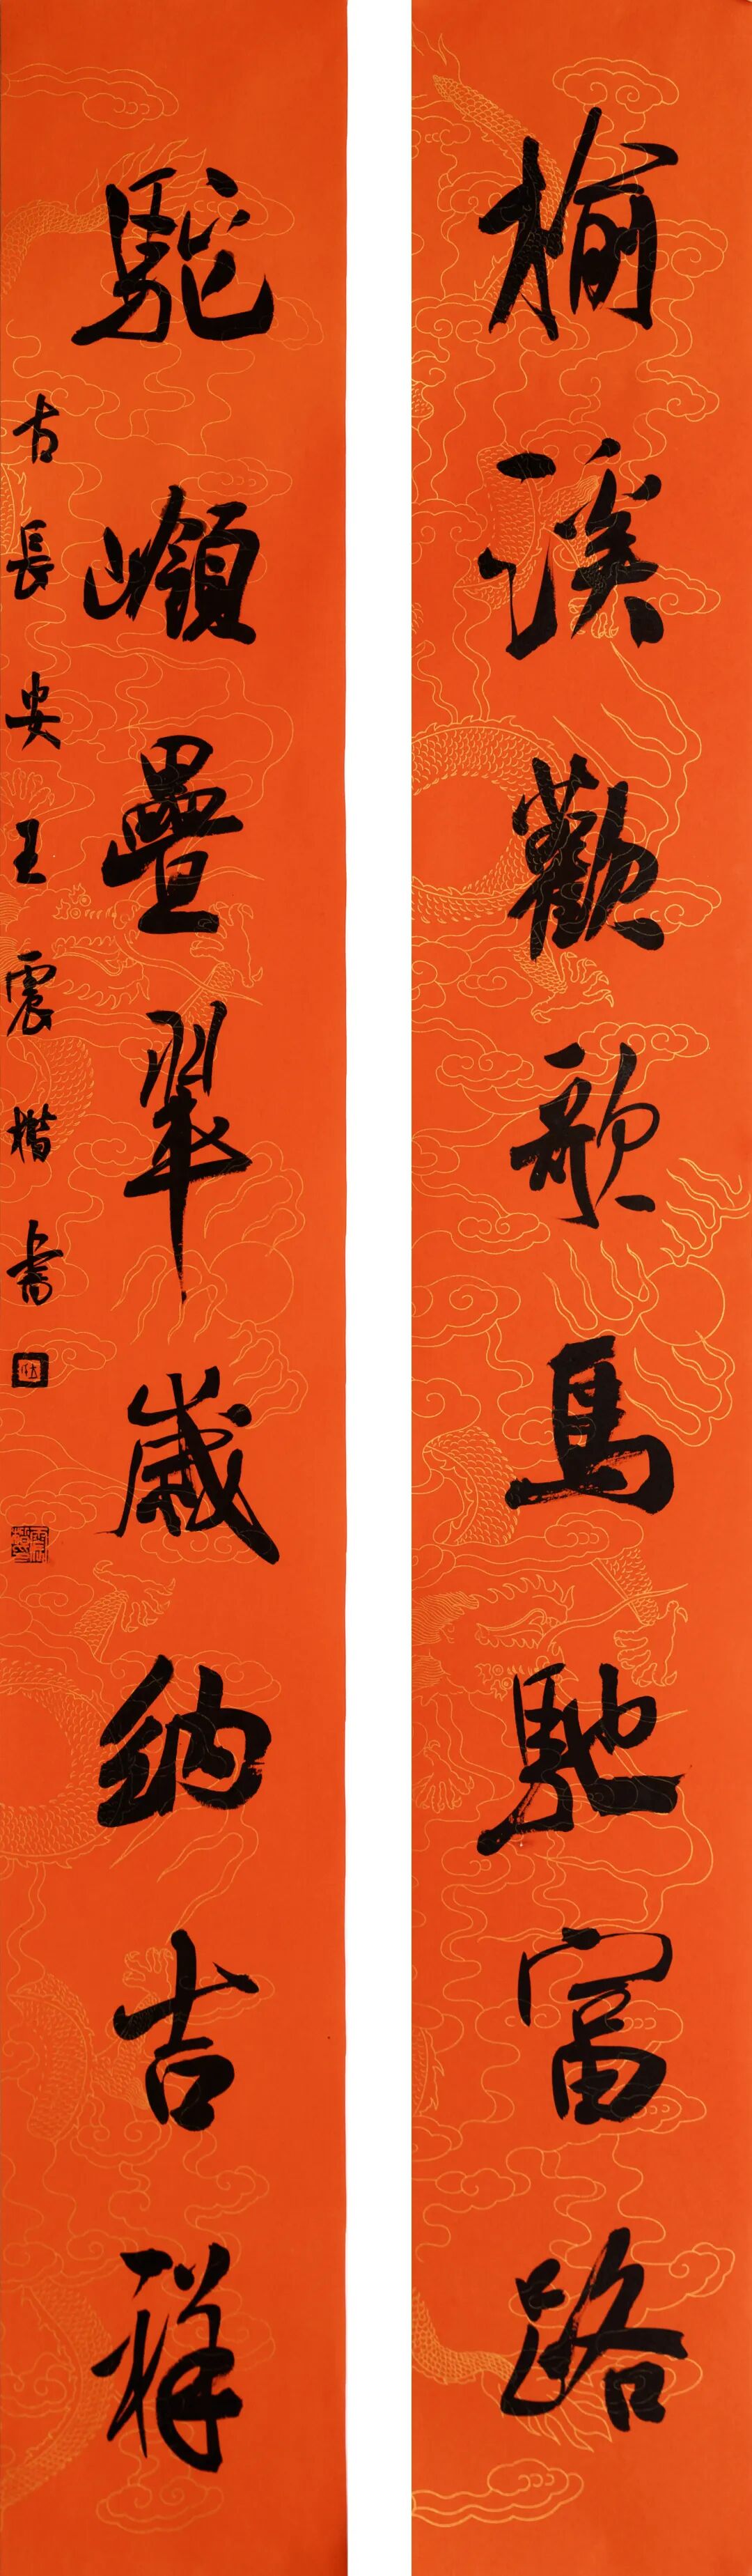 榆溪歡歌馬馳富路
駝嶺疊翠歲納吉祥
古長安王震楷書